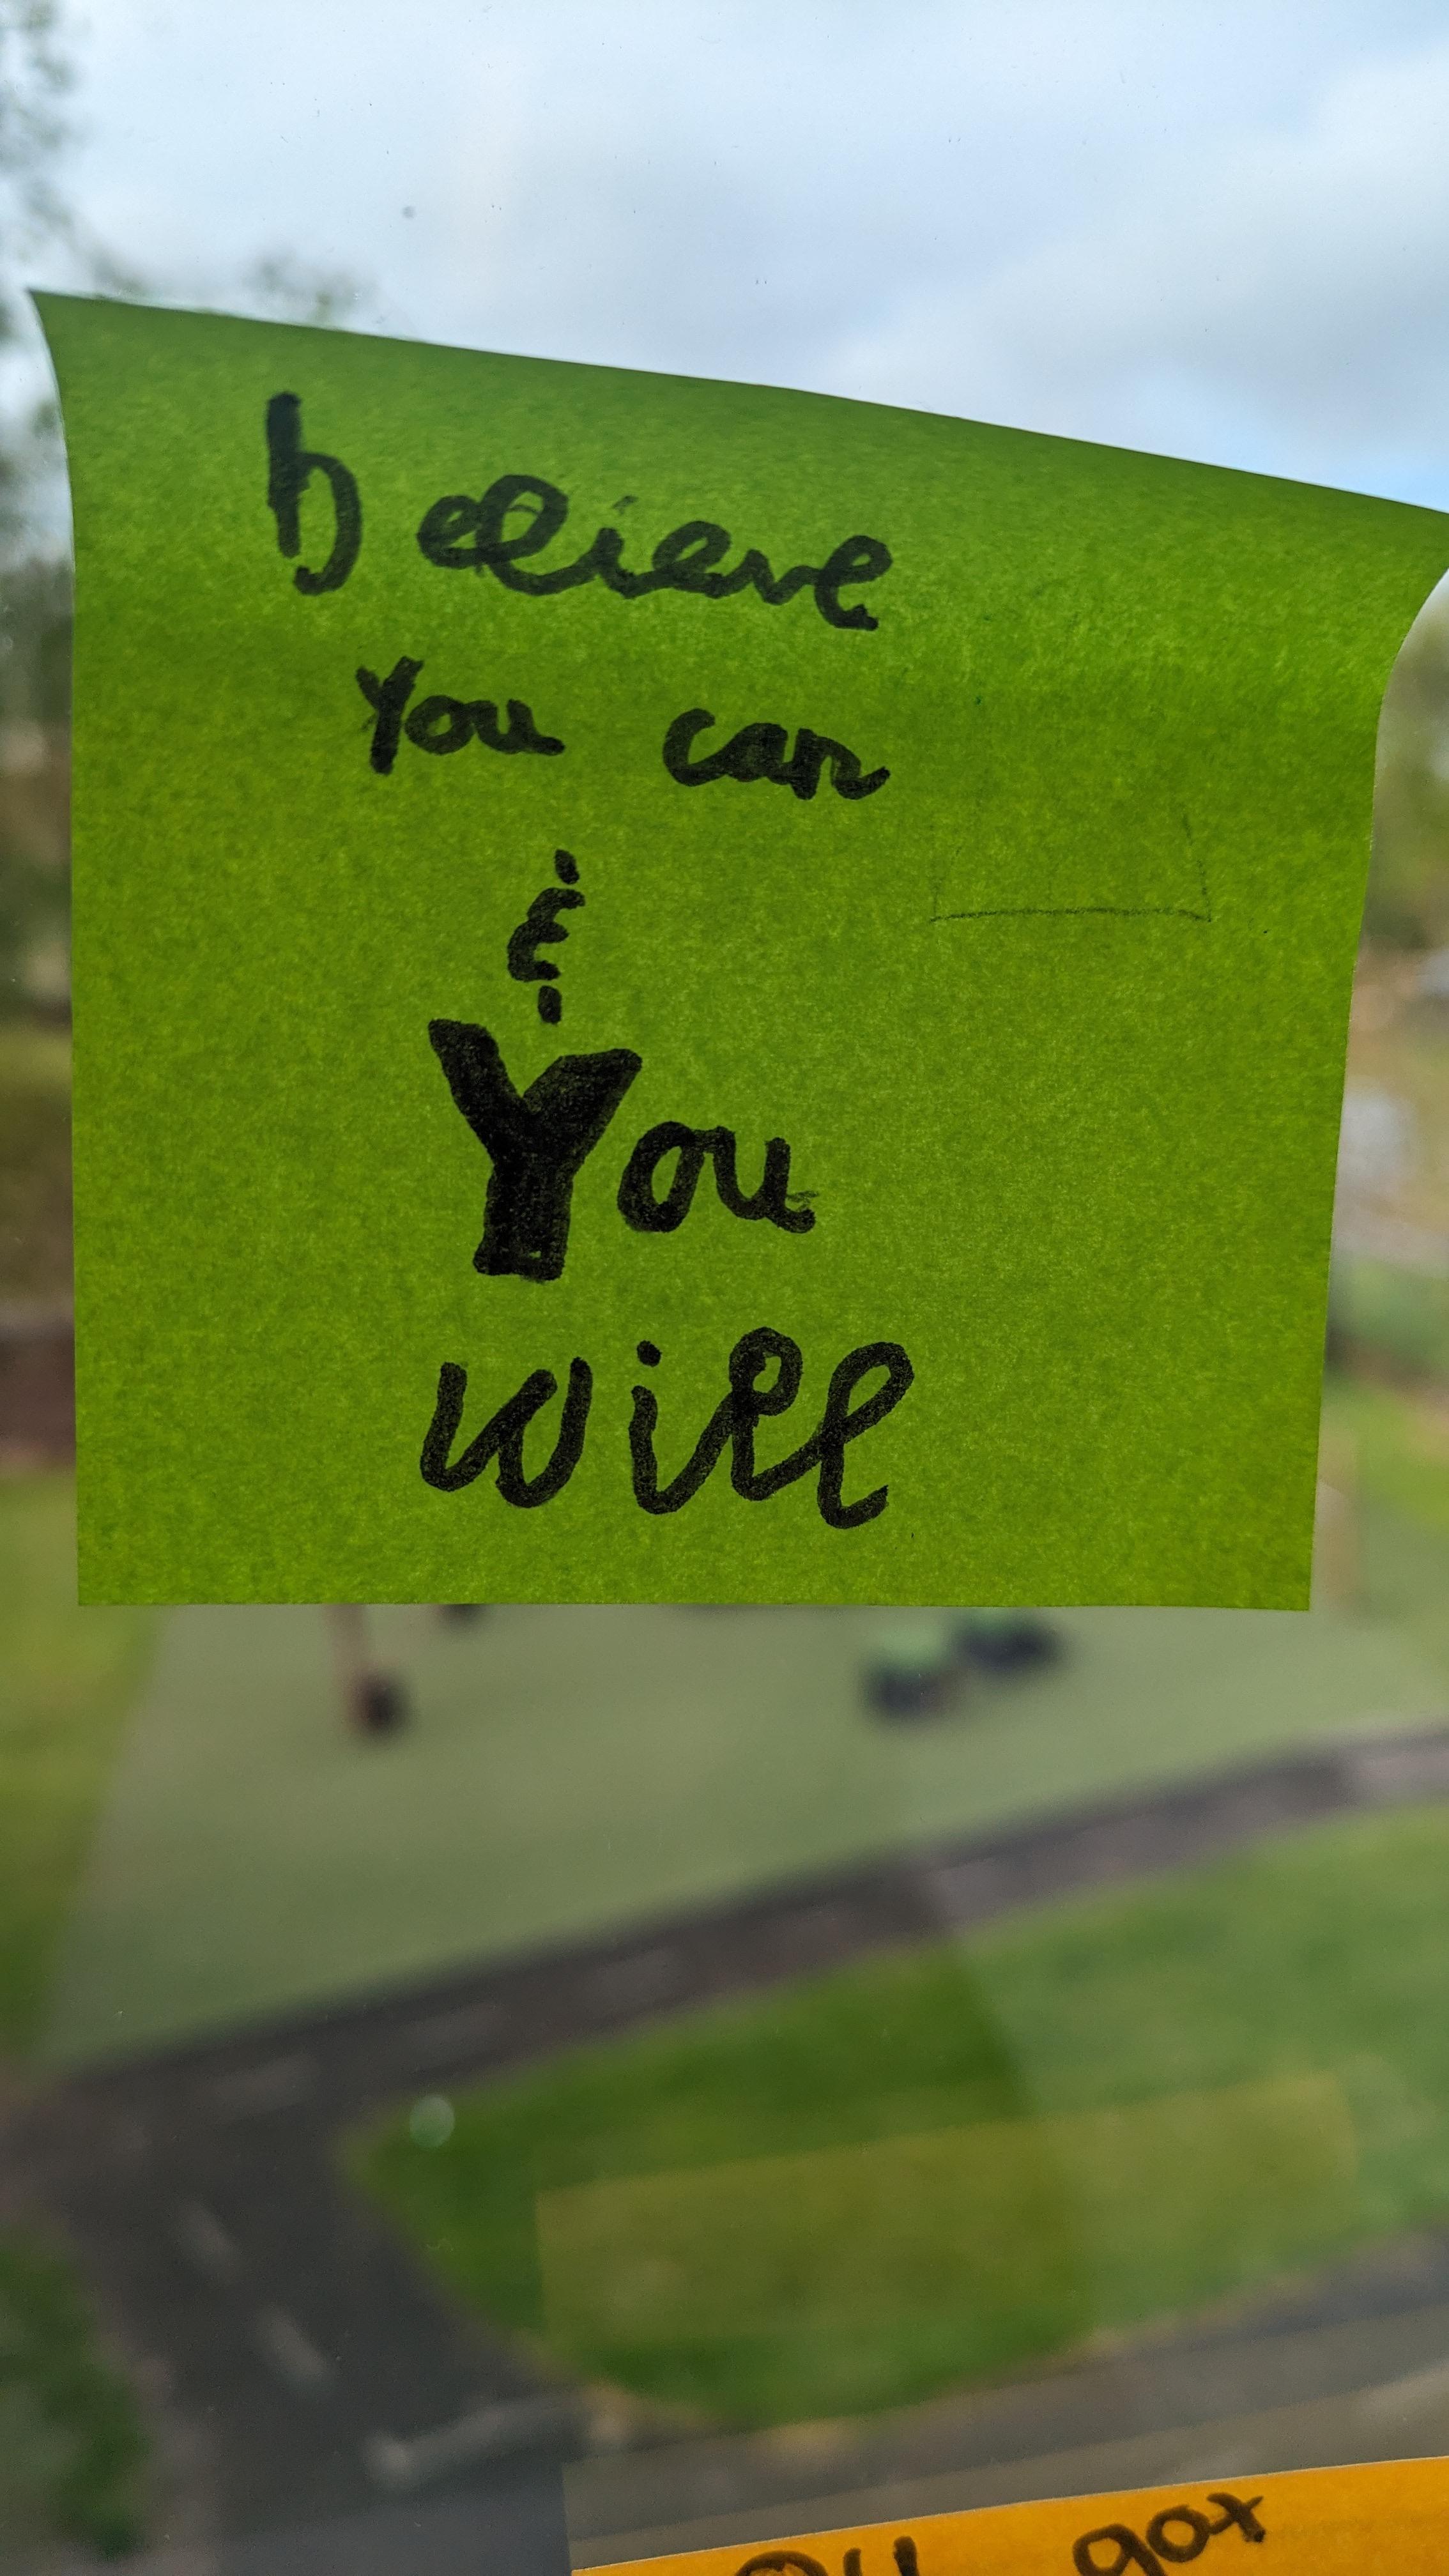 believe
You can
&
You
will
got